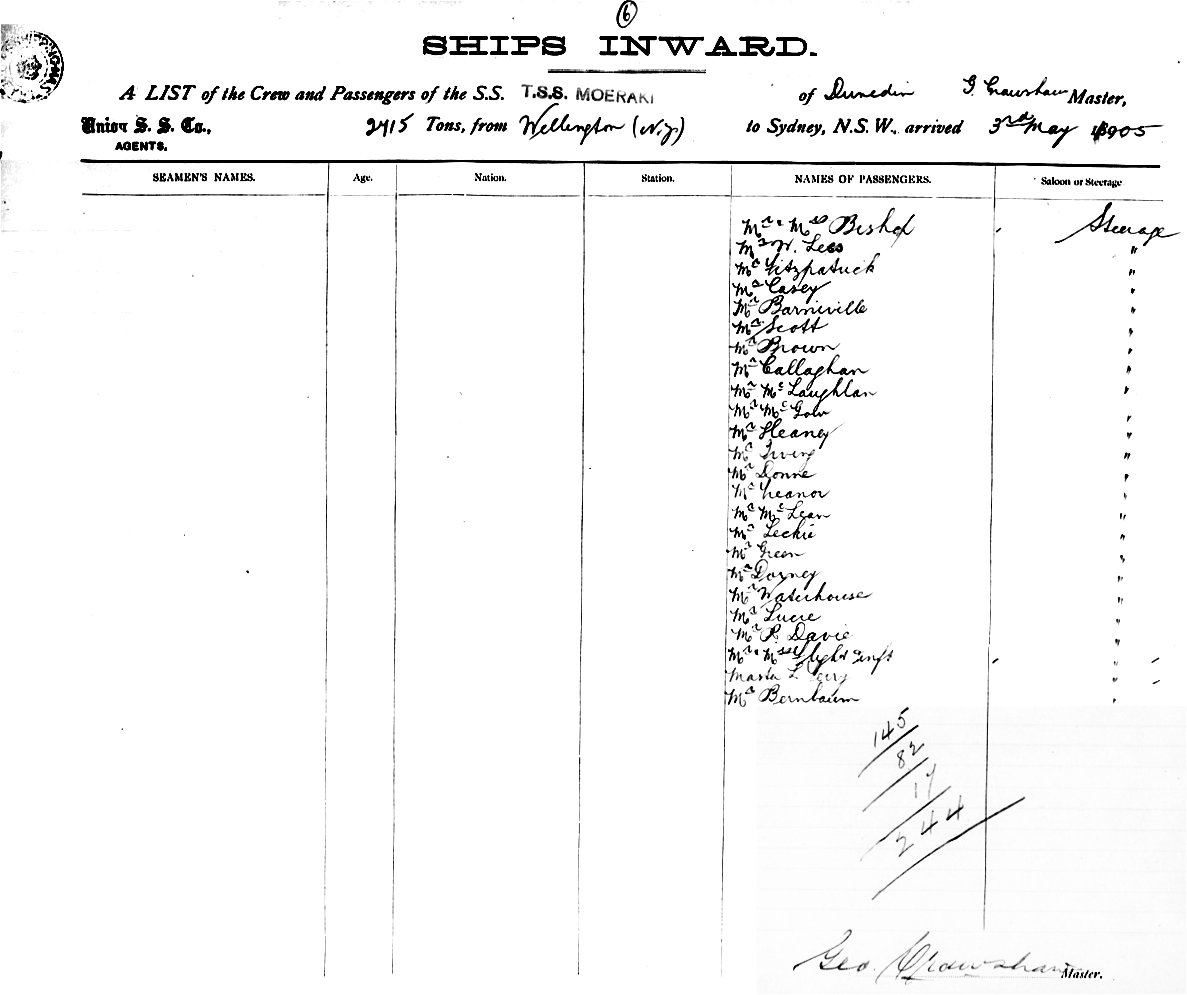 6
SHIPS INWARD.
A LIST of the Crew and Passengers of the S.S. T.S.S. MOERAKI of Dunedin G. Crawshaw Master,
Union S. S. Co., 2415 Tons, from Wellington (N.Z.) to Sydney, N.S.W., arrived 3rd May 1905
AGENTS.
SEAMEN'S NAMES. Age. Nation. Station. NAMES OF PASSENGERS. Saloon or Steerage
Mr & Mrs Bishop Steerage
Mr W. Lees "
Mr Fitzpatrick "
Mr Casey "
Mr Barniville "
Mr Scott "
Mr Brown "
Mr Callaghan "
Mr McLaughlan "
Mr McGow "
Mr Heaney "
Mr Irving "
Mr Donne "
Mr "
Mr McLean "
Mr Leckie "
Mr Green "
Mr Dorney "
Mr Waterhouse "
Mr Lucie "
Mr P. Davie "
Mr & Mrs & inft "
Master L. "
Mr Bernbaum "
145
82
17
244
Geo. Crawshaw Master.